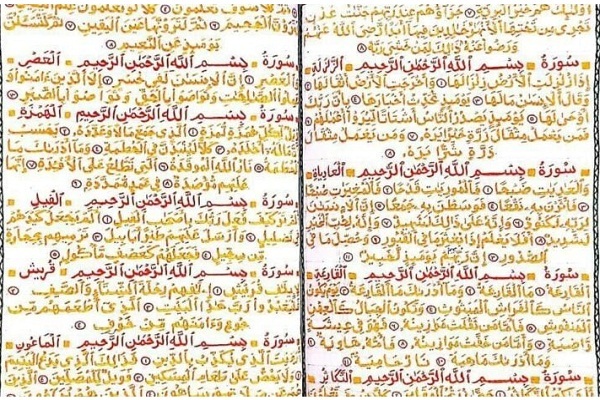 أُوْلَٰئِكَ هُمْ خَيْرُ الْبَرِيَّةِ ٧ جَزَاؤُهُمْ عِندَ رَبِّهِمْ جَنَّتُ عَدْنٍ
تَجْرِي مِن تَحْتِهَا الْأَنْهَرُ خَلِدِينَ فِيهَا أَبَدًا رَضِيَ اللَّهُ عَنْهُمْ
وَرَضُوا عَنْهُ ذَلِكَ لِمَنْ خَشِيَ رَبَّهُ ٨
سُورَةُ بِسْمِ اللَّهِ الرَّحْمَنِ الرَّحِيمِ الزَّلْزَلَة
إِذَا زُلْزِلَتِ الْأَرْضُ زِلْزَالَهَا ١ وَأَخْرَجَتِ الْأَرْضُ أَثْقَالَهَا ٢
وَقَالَ الْإِنسَنُ مَا لَهَا ٣ يَوْمَئِذٍ تُحَدِّثُ أَخْبَارَهَا ٤ بِأَنَّ رَبَّكَ
أَوْحَى لَهَا ٥ يَوْمَئِذٍ يَصْدُرُ النَّاسُ أَشْتَاتًا لِيُرَوْا أَعْمَلَهُمْ ٦
فَمَن يَعْمَلْ مِثْقَالَ ذَرَّةٍ خَيْرًا يَرَهُ ٧ وَمَن يَعْمَلْ مِثْقَالَ
ذَرَّةٍ شَرًّا يَرَهُ ٨
سُورَةُ بِسْمِ اللَّهِ الرَّحْمَنِ الرَّحِيمِ الْعَادِيَات
وَالْعَدِيَتِ ضَبْحًا ١ فَالْمُورِيَتِ قَدْحًا ٢ فَالْمُغِيرَتِ صُبْحًا
٣ فَأَثَرْنَ بِهِ نَقْعًا ٤ فَوَسَطْنَ بِهِ جَمْعًا ٥ إِنَّ الْإِنسَنَ
لِرَبِّهِ لَكَنُودٌ ٦ وَإِنَّهُ عَلَى ذَلِكَ لَشَهِيدٌ ٧ وَإِنَّهُ لِحُبِّ الْخَيْرِ
لَشَدِيدٌ ٨ أَفَلَا يَعْلَمُ إِذَا بُعْثِرَ مَا فِي الْقُبُورِ ٩ وَحُصِّلَ مَا فِي
الصُّدُورِ ١٠ إِنَّ رَبَّهُم بِهِمْ يَوْمَئِذٍ لَّخَبِيرٌ ١١
سُورَةُ بِسْمِ اللَّهِ الرَّحْمَنِ الرَّحِيمِ الْقَارِعَة
الْقَارِعَةُ ١ مَا الْقَارِعَةُ ٢ وَمَا أَدْرَىكَ مَا الْقَارِعَةُ ٣ يَوْمَ يَكُونُ
النَّاسُ كَالْفَرَاشِ الْمَبْثُوثِ ٤ وَتَكُونُ الْجِبَالُ كَالْعِهْنِ
الْمَنفُوشِ ٥ فَأَمَّا مَن ثَقُلَتْ مَوَزِينُهُ ٦ فَهُوَ فِي عِيشَةٍ
رَاضِيَةٍ ٧ وَأَمَّا مَنْ خَفَّتْ مَوَزِينُهُ ٨ فَأُمُّهُ هَاوِيَةٌ ٩
وَمَا أَدْرَىكَ مَا هِيَهْ ١٠ نَارٌ حَامِيَةٌ ١١
سُورَةُ بِسْمِ اللَّهِ الرَّحْمَنِ الرَّحِيمِ التَّكَاثُر
كَلَّا سَوْفَ تَعْلَمُونَ
الْجَحِيمَ ٦ ثُمَّ لَتَرَوُنَّهَا عَيْنَ الْيَقِينِ ٧ ثُمَّ لَتُسْـَٔلُنَّ
يَوْمَئِذٍ عَنِ النَّعِيمِ ٨
سُورَةُ بِسْمِ اللَّهِ الرَّحْمَنِ الرَّحِيمِ الْعَصْر
وَالْعَصْرِ ١ إِنَّ الْإِنسَنَ لَفِي خُسْرٍ ٢ إِلَّا الَّذِينَ ءَامَنُوا
وَعَمِلُوا الصَّلِحَتِ وَتَوَاصَوْا بِالْحَقِّ وَتَوَاصَوْا بِالصَّبْرِ ٣
سُورَةُ بِسْمِ اللَّهِ الرَّحْمَنِ الرَّحِيمِ الْهُمَزَة
وَيْلٌ لِّكُلِّ هُمَزَةٍ لُّمَزَةٍ ١ الَّذِي جَمَعَ مَالًا وَعَدَّدَهُ ٢ يَحْسَبُ
الْحُطَمَةُ ٥ نَارُ اللَّهِ الْمُوقَدَةُ ٦ الَّتِي تَطَّلِعُ عَلَى الْأَفْـِٔدَةِ ٧ إِنَّهَا
عَلَيْهِم مُّؤْصَدَةٌ ٨ فِي عَمَدٍ مُّمَدَّدَةٍ ٩
سُورَةُ بِسْمِ اللَّهِ الرَّحْمَنِ الرَّحِيمِ الْفِيل
أَلَمْ تَرَ كَيْفَ فَعَلَ رَبُّكَ بِأَصْحَبِ الْفِيلِ ١ أَلَمْ يَجْعَلْ كَيْدَهُمْ
فِي تَضْلِيلٍ ٢ وَأَرْسَلَ عَلَيْهِمْ طَيْرًا أَبَابِيلَ ٣ تَرْمِيهِم بِحِجَارَةٍ
مِّن سِجِّيلٍ ٤ فَجَعَلَهُمْ كَعَصْفٍ مَّأْكُولٍ ٥
سُورَةُ بِسْمِ اللَّهِ الرَّحْمَنِ الرَّحِيمِ قُرَيْش
لِإِيلَفِ قُرَيْشٍ ١ إِلَفِهِمْ رِحْلَةَ الشِّتَاءِ وَالصَّيْفِ ٢
فَلْيَعْبُدُوا رَبَّ هَذَا الْبَيْتِ ٣ الَّذِي أَطْعَمَهُم مِّن
جُوعٍ وَءَامَنَهُم مِّنْ خَوْفٍ ٤
سُورَةُ بِسْمِ اللَّهِ الرَّحْمَنِ الرَّحِيمِ الْمَاعُون
أَرَءَيْتَ الَّذِي يُكَذِّبُ بِالدِّينِ ١ فَذَلِكَ الَّذِي يَدُعُّ الْيَتِيمَ
٢ وَلَا يَحُضُّ عَلَى طَعَامِ الْمِسْكِينِ ٣ فَوَيْلٌ لِّلْمُصَلِّينَ ٤ الَّذِينَ